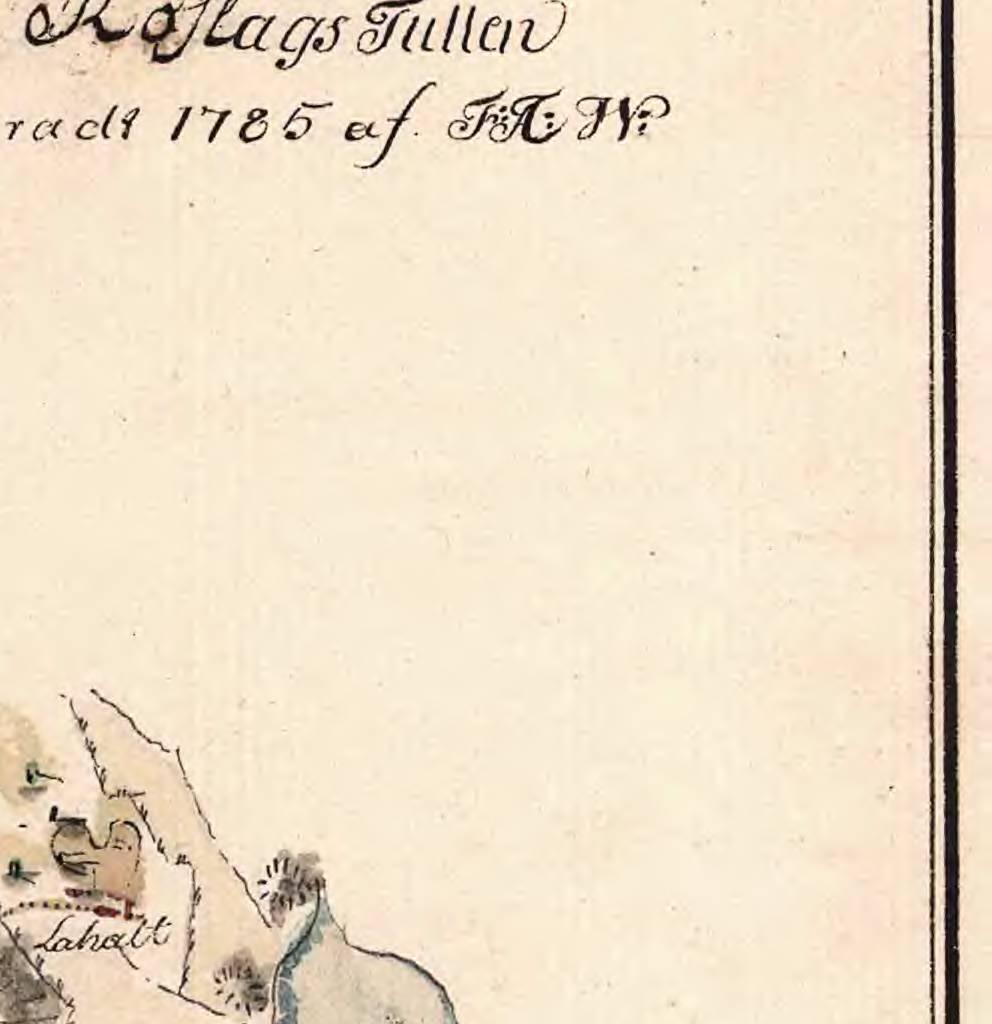 RoslagsTullen
radt 1785 af. F:A: W?
Lahalt